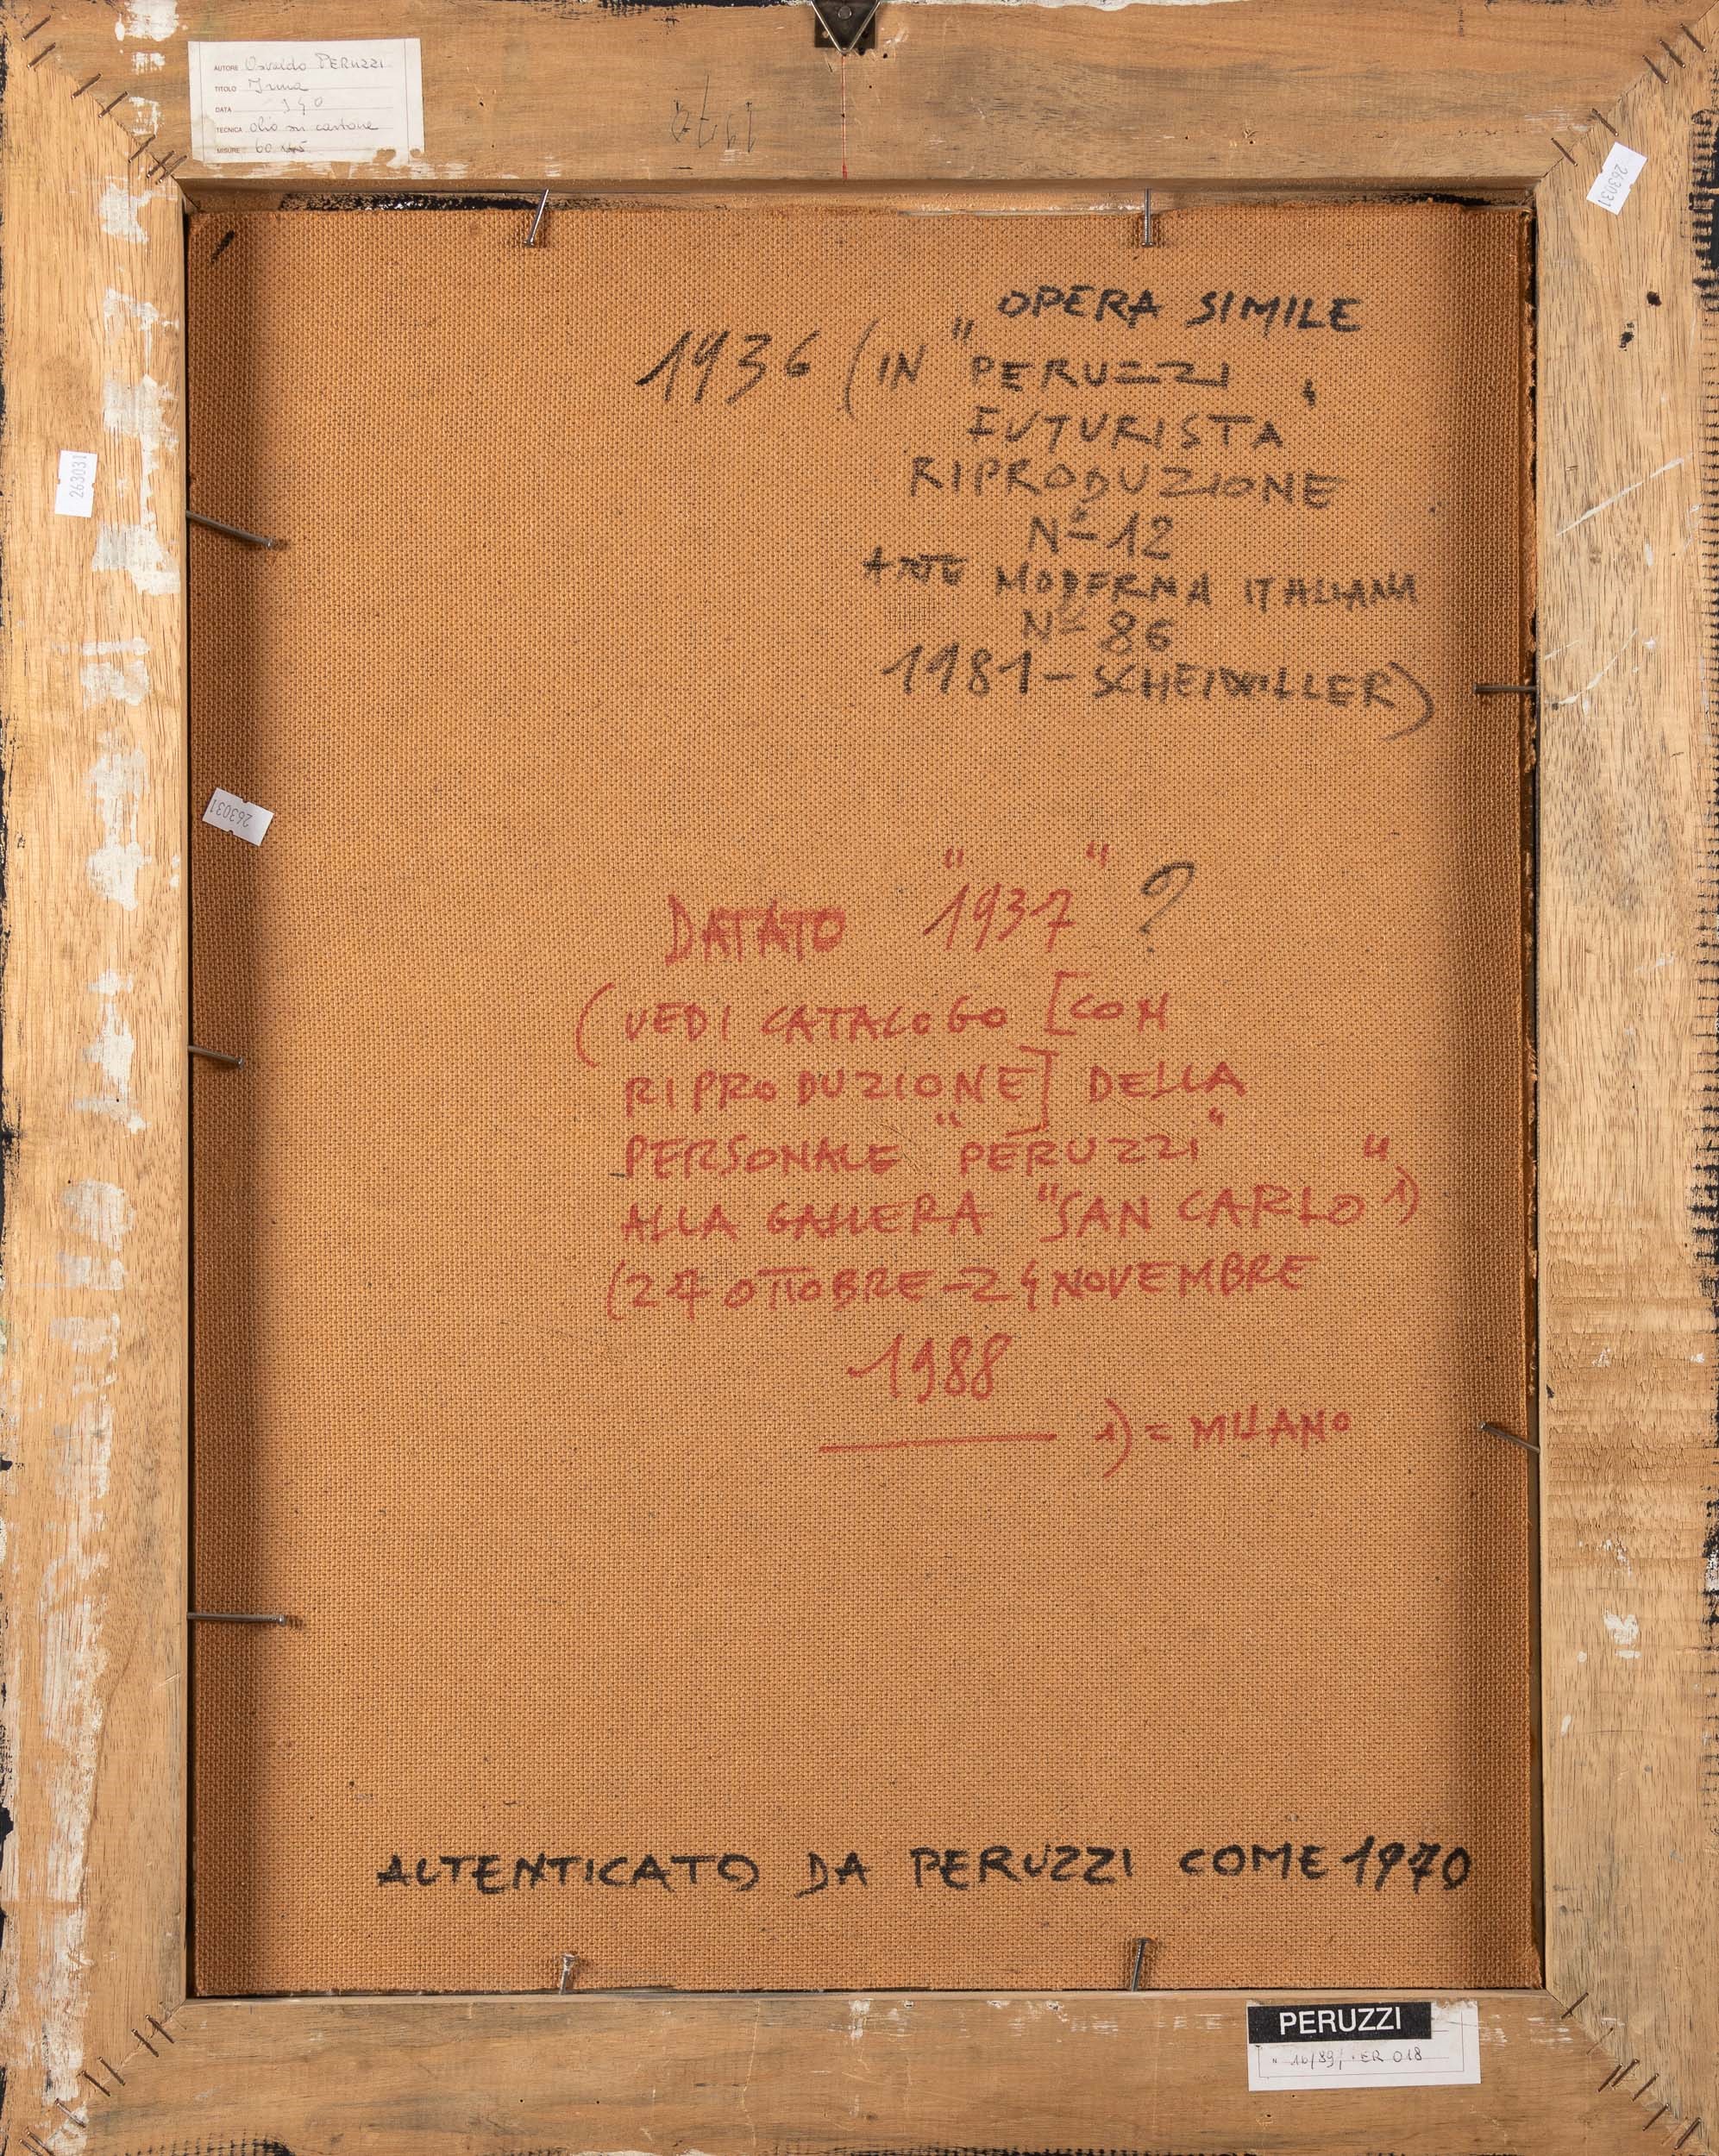 AUTORE Osvaldo PERUZZI
TITOLO Irma
DATA
TECNICA olio su cartone
MISURE: 60
263031
263031
263031
OPERA SIMILE
1936 (IN "PERUZZI
FUTURISTA"
RIPRODUZIONE
Nº 12
ARTE MODERNA ITALIANA
Nº 86
1981 - SCHEIWILLER)
DATATO "1937" ?
(VEDI CATALOGO [CON
RIPRODUZIONE] DELLA
PERSONALE "PERUZZI"
ALLA GALLERA "SAN CARLO" 1)
(27 OTTOBRE - 24 NOVEMBRE
1988
1) = MILANO
AUTENTICATO DA PERUZZI COME 1970
PERUZZI
N 16/89/ ER 018